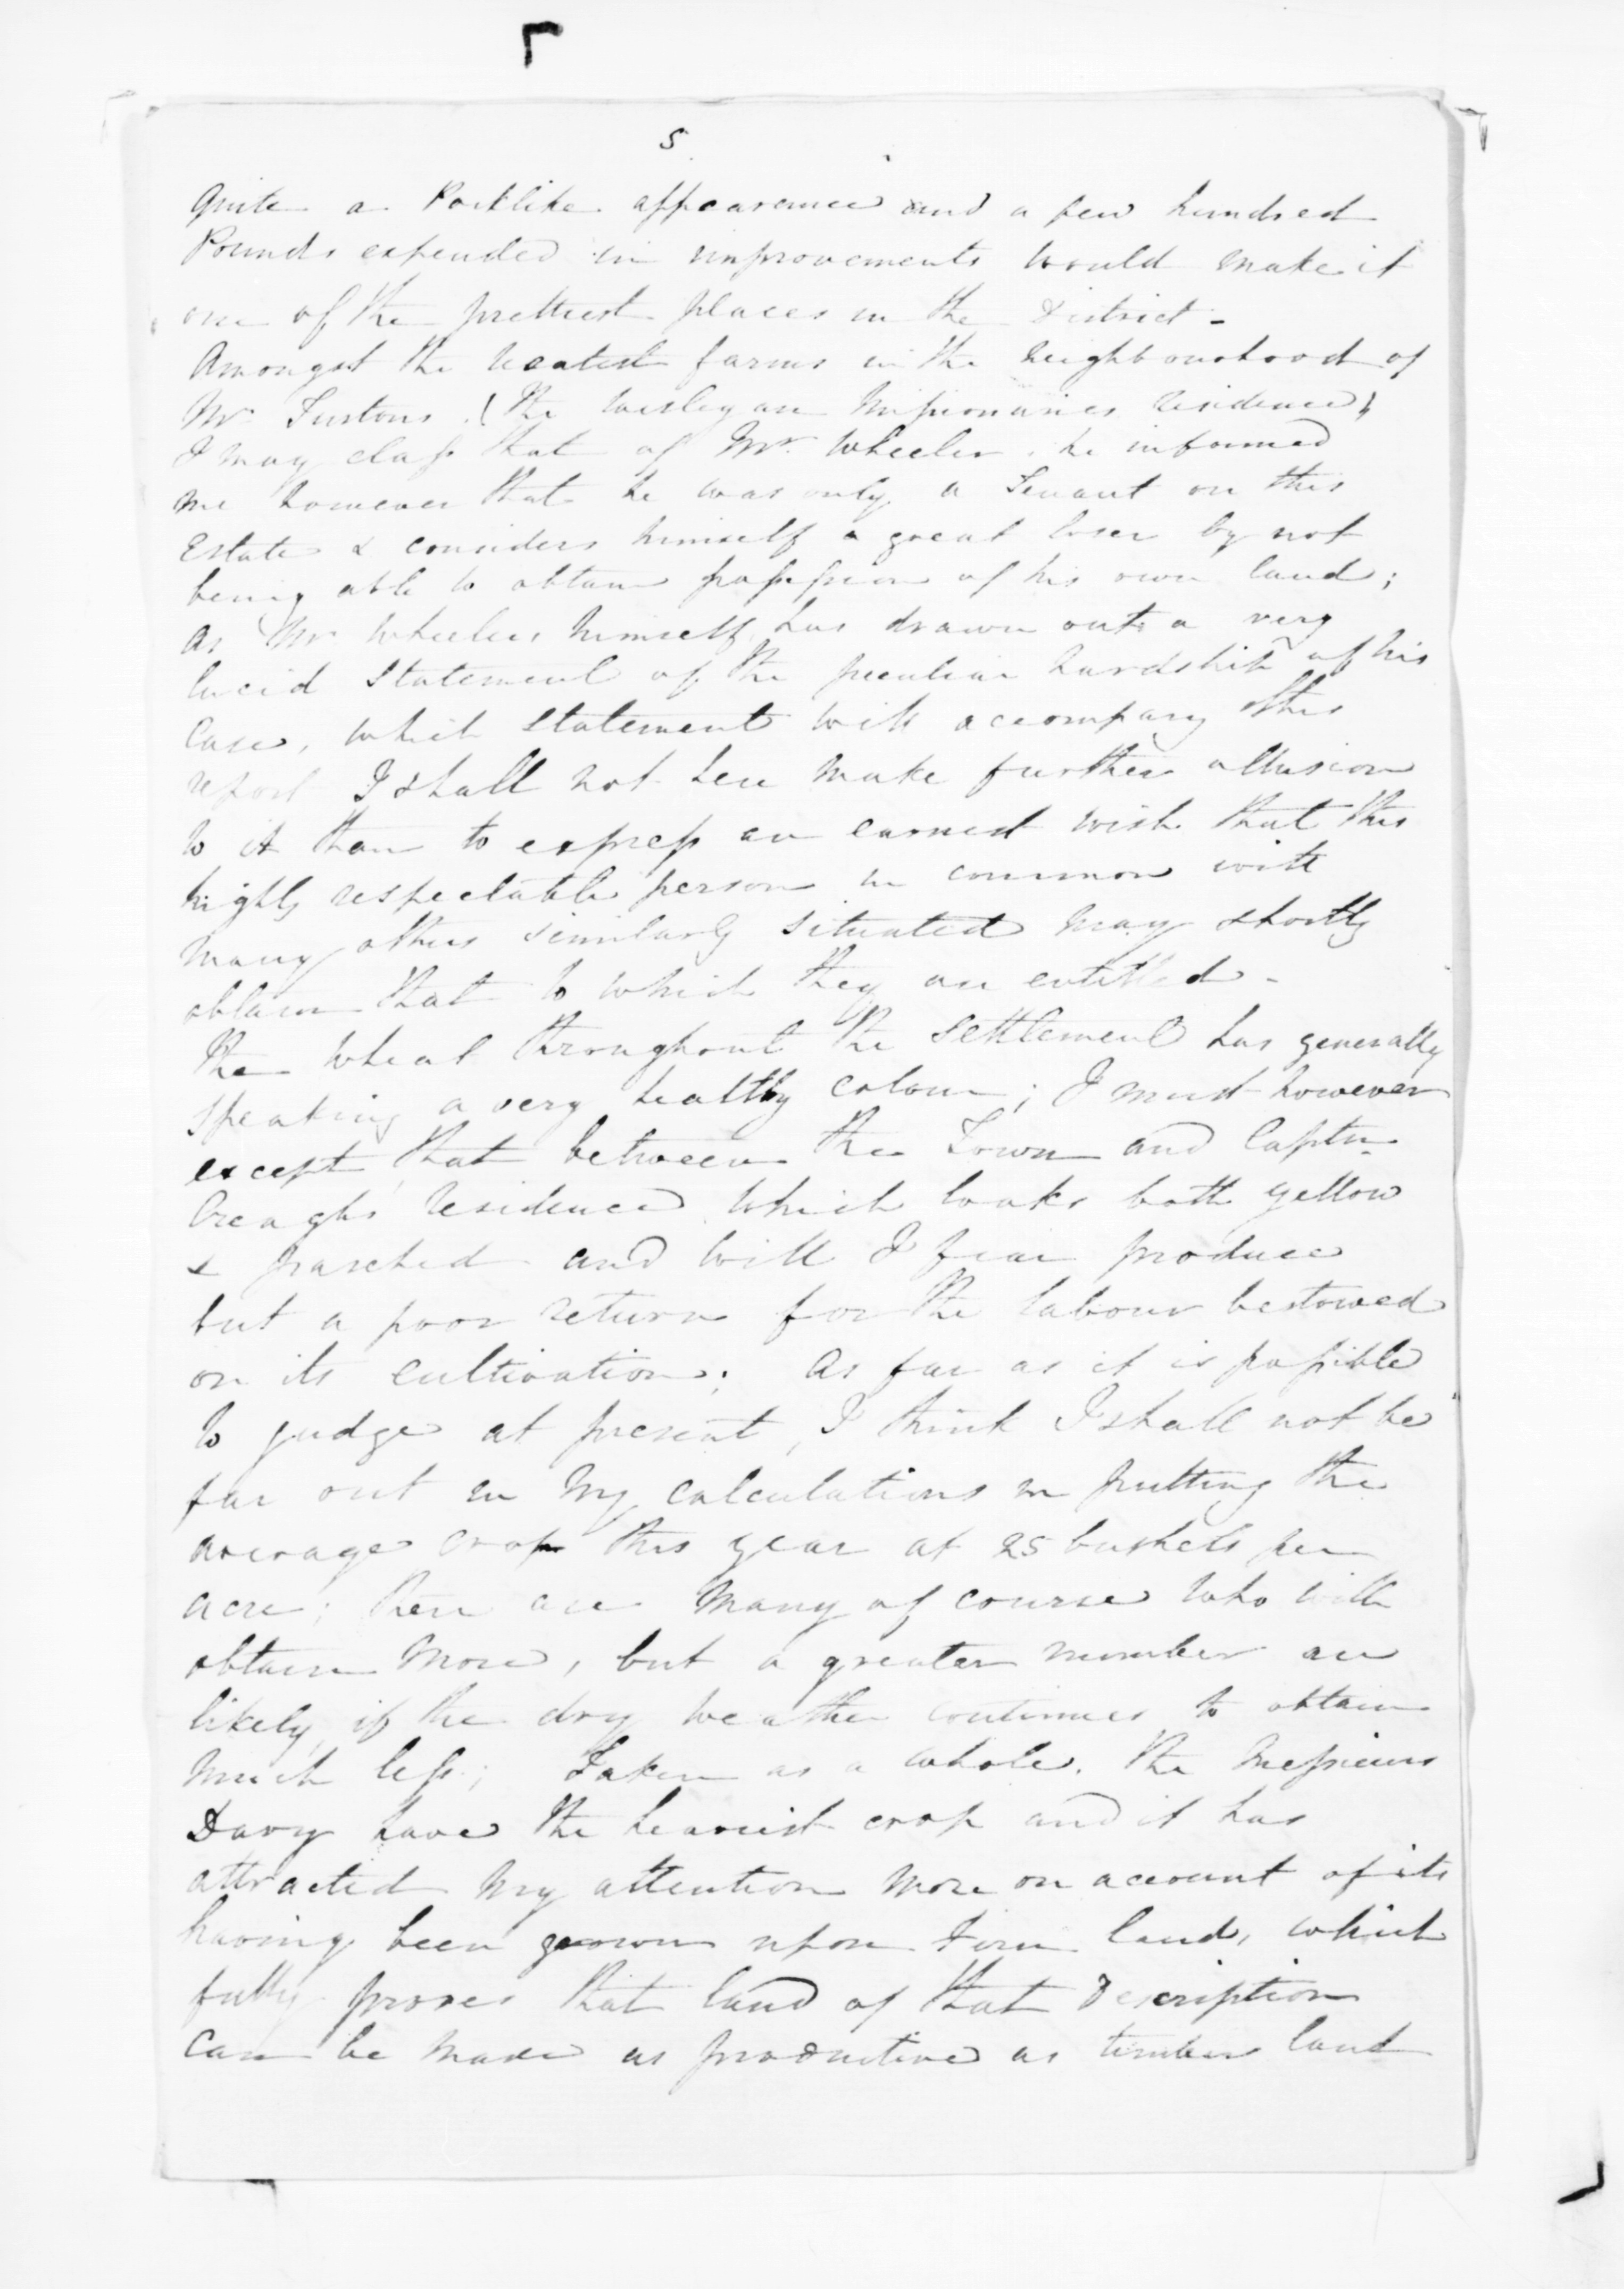 5
Quite a Parklike appearance and a few hundred
Pounds expended in improvements would make it
one of the prettiest places in the District -
Amongst the neatest farms in the neighbourhood of
Mr Turtons (the Wesleyan Missionaries residence)
I may class that of Mr. Wheeler, he informed
me however that he was only a Tenant on this
Estate & considers himself a great loser by not
being able to obtain possession of his own land;
as Mr Wheeler himself has drawn out a very
lucid statement of the peculiar hardship of his
Case, which statement will accompany this
report I shall not here make further allusion
to it than to express an earnest wish that this
highly respectable person in common with
many others similarly situated may shortly
obtain that to which they are entitled -
The wheat throughout the settlement has generally
speaking a very healthy colour; I must however
except that between the Town and Captn
Creaghs residence which looks both yellow
& parched and will I fear produce
but a poor return for the labour bestowed
on its cultivation; As far as it is possible
to judge at present, I think I shall not be
far out in my calculations in putting the
average crop this year at 25 bushels per
acre; there are many of course who will
obtain more, but a greater number are
likely, if the dry weather continues to obtain
much less; Taken as a whole, the Messieurs
Davy have the heaviest crop and it has
attracted my attention more on account of its
having been grown upon Fern land, which
fully proves that land of that Description
Can be made as productive as timber land